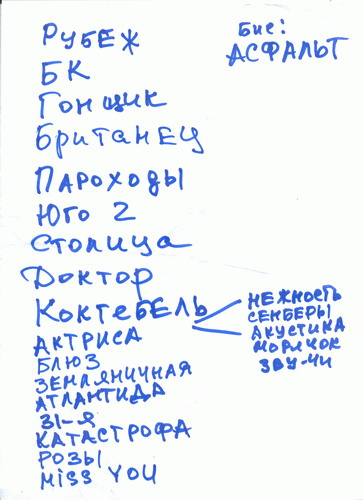 Рубеж
БК
Гонщик
Британец
Пароходы
Юго 2
Столица
Доктор
Коктебель
Актриса
Блюз
Земляничная
Атлантида
31-я
Катастрофа
Розы
Miss You
Бис:
Асфальт
Нежность
Сенберы
Акустика
Морячок